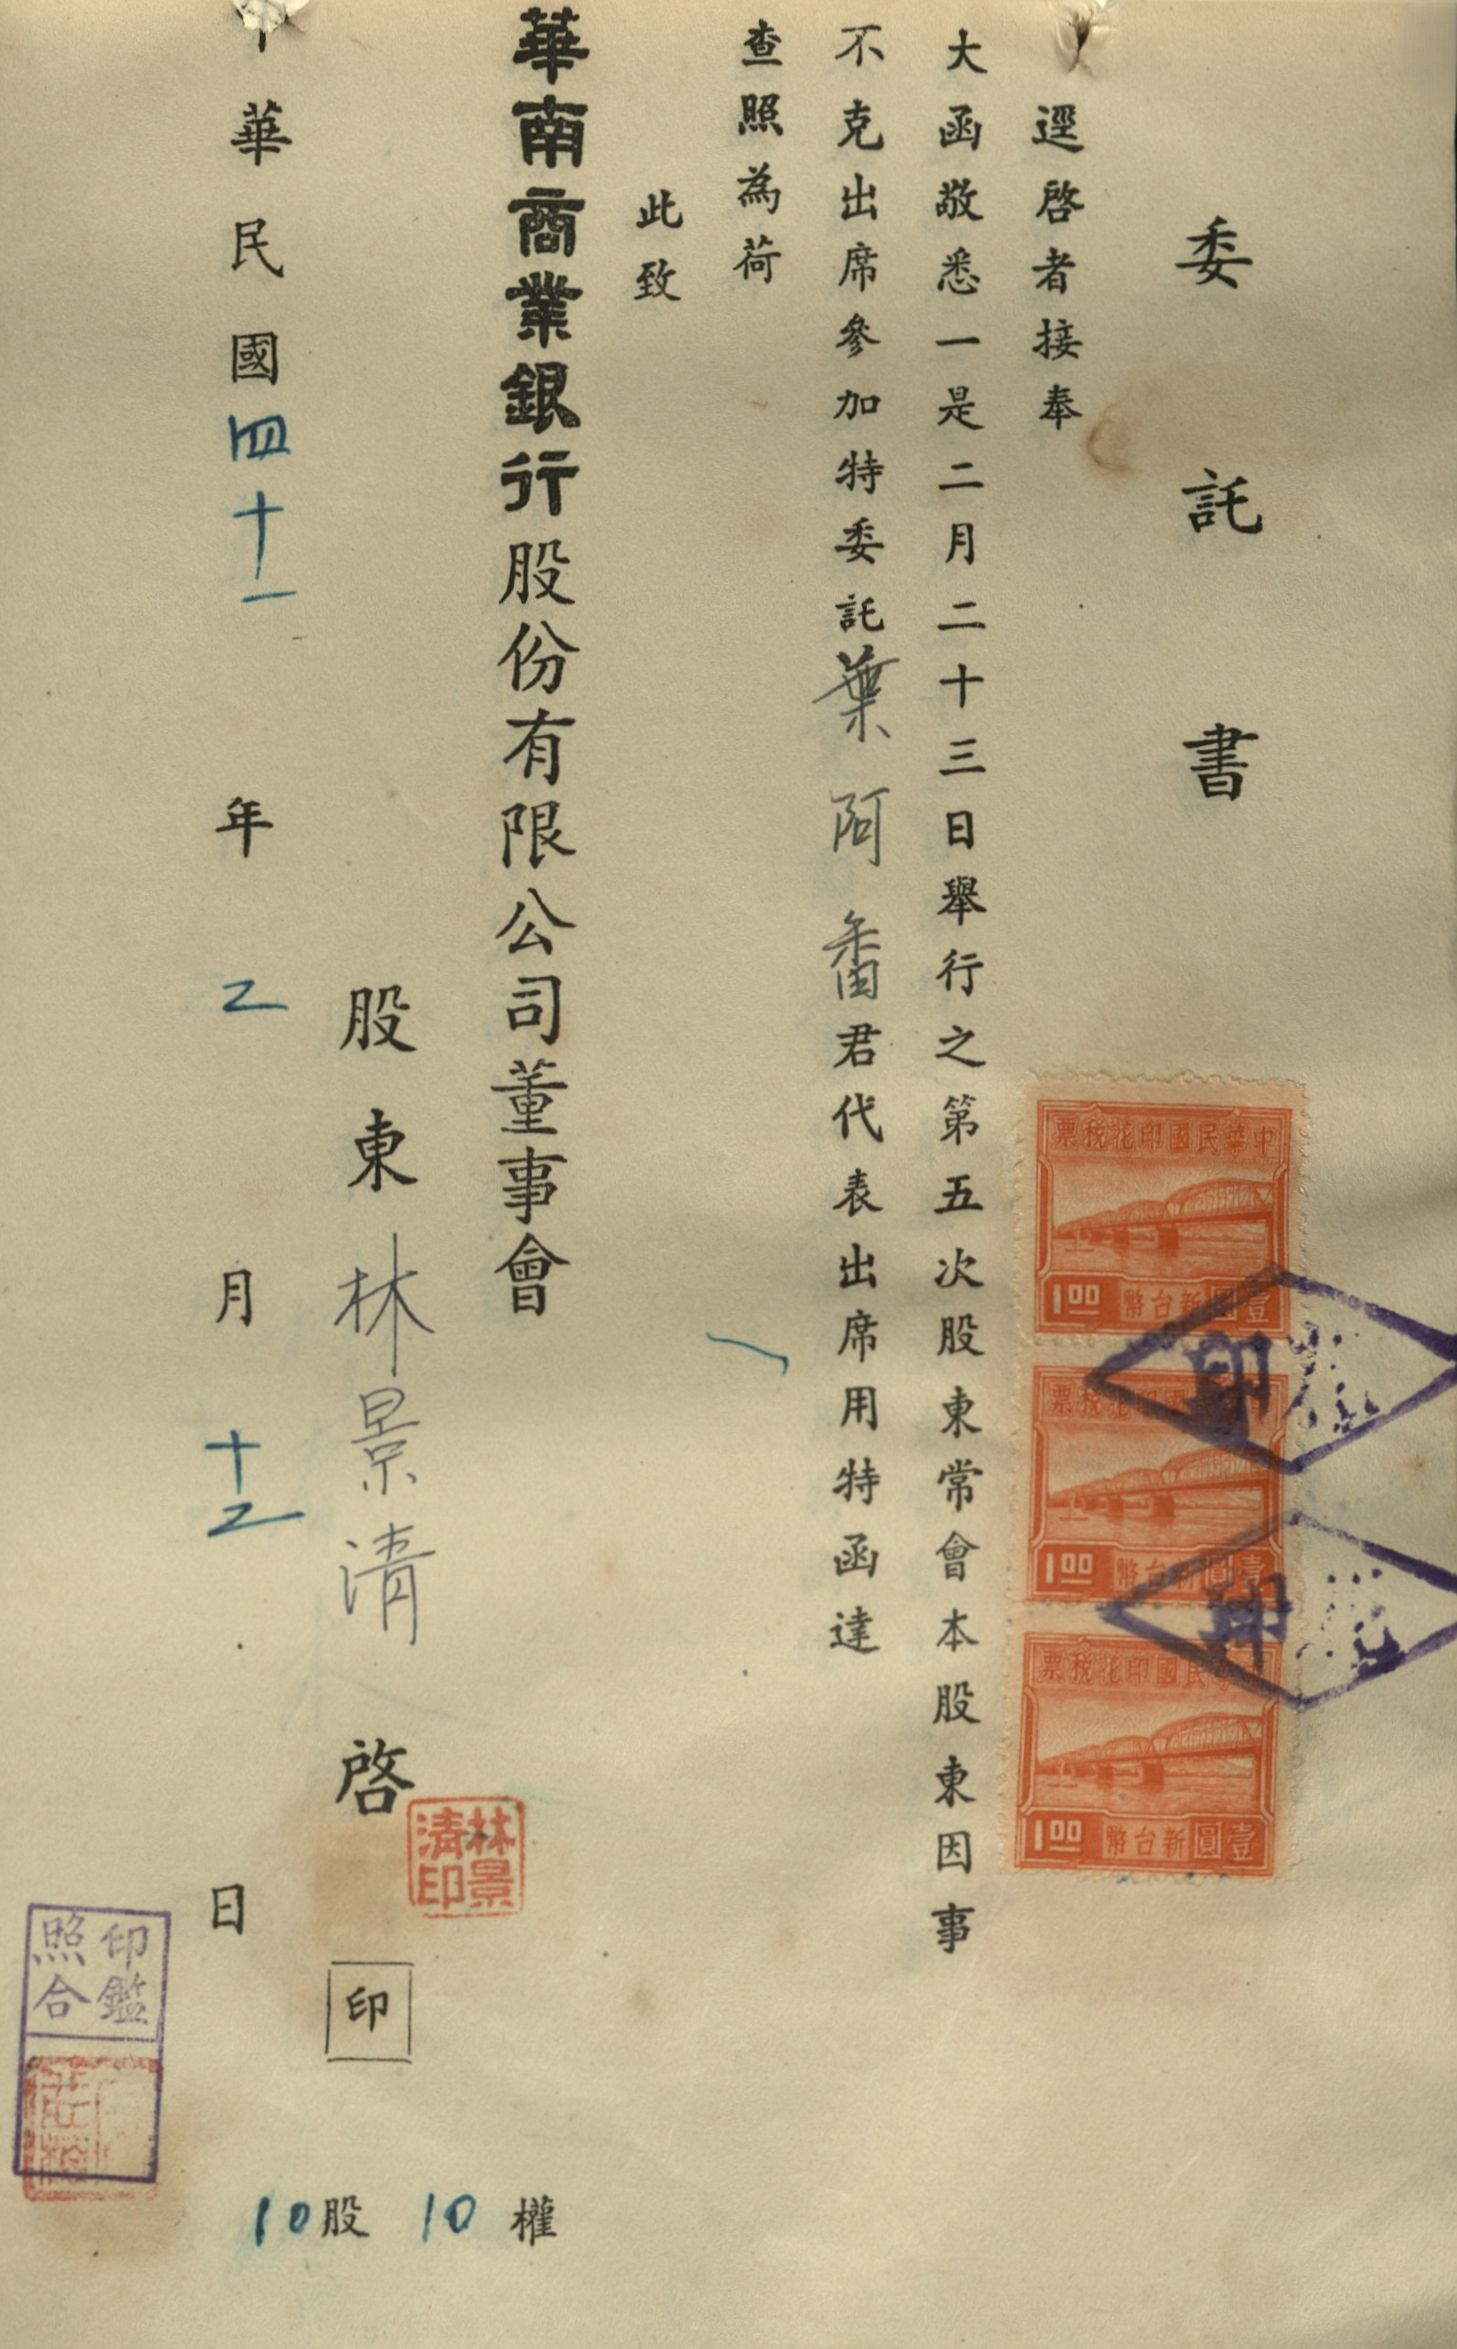 委託書
逕啓者接奉
大函敬悉一是二月二十三日舉行之第五次股東常會本股東因事
不克出席參加特委託葉阿番君代表出席用特函達
查照為荷
此致
華南商業銀行股份有限公司董事會
股東林景清啓
林景清印
印
中華民國四十一年乙月十乙日
10股 10權
印鑑照合
中華民國印花稅票
1.00 壹圓新台幣
中華民國印花稅票
1.00 壹圓新台幣
中華民國印花稅票
1.00 壹圓新台幣
印
印